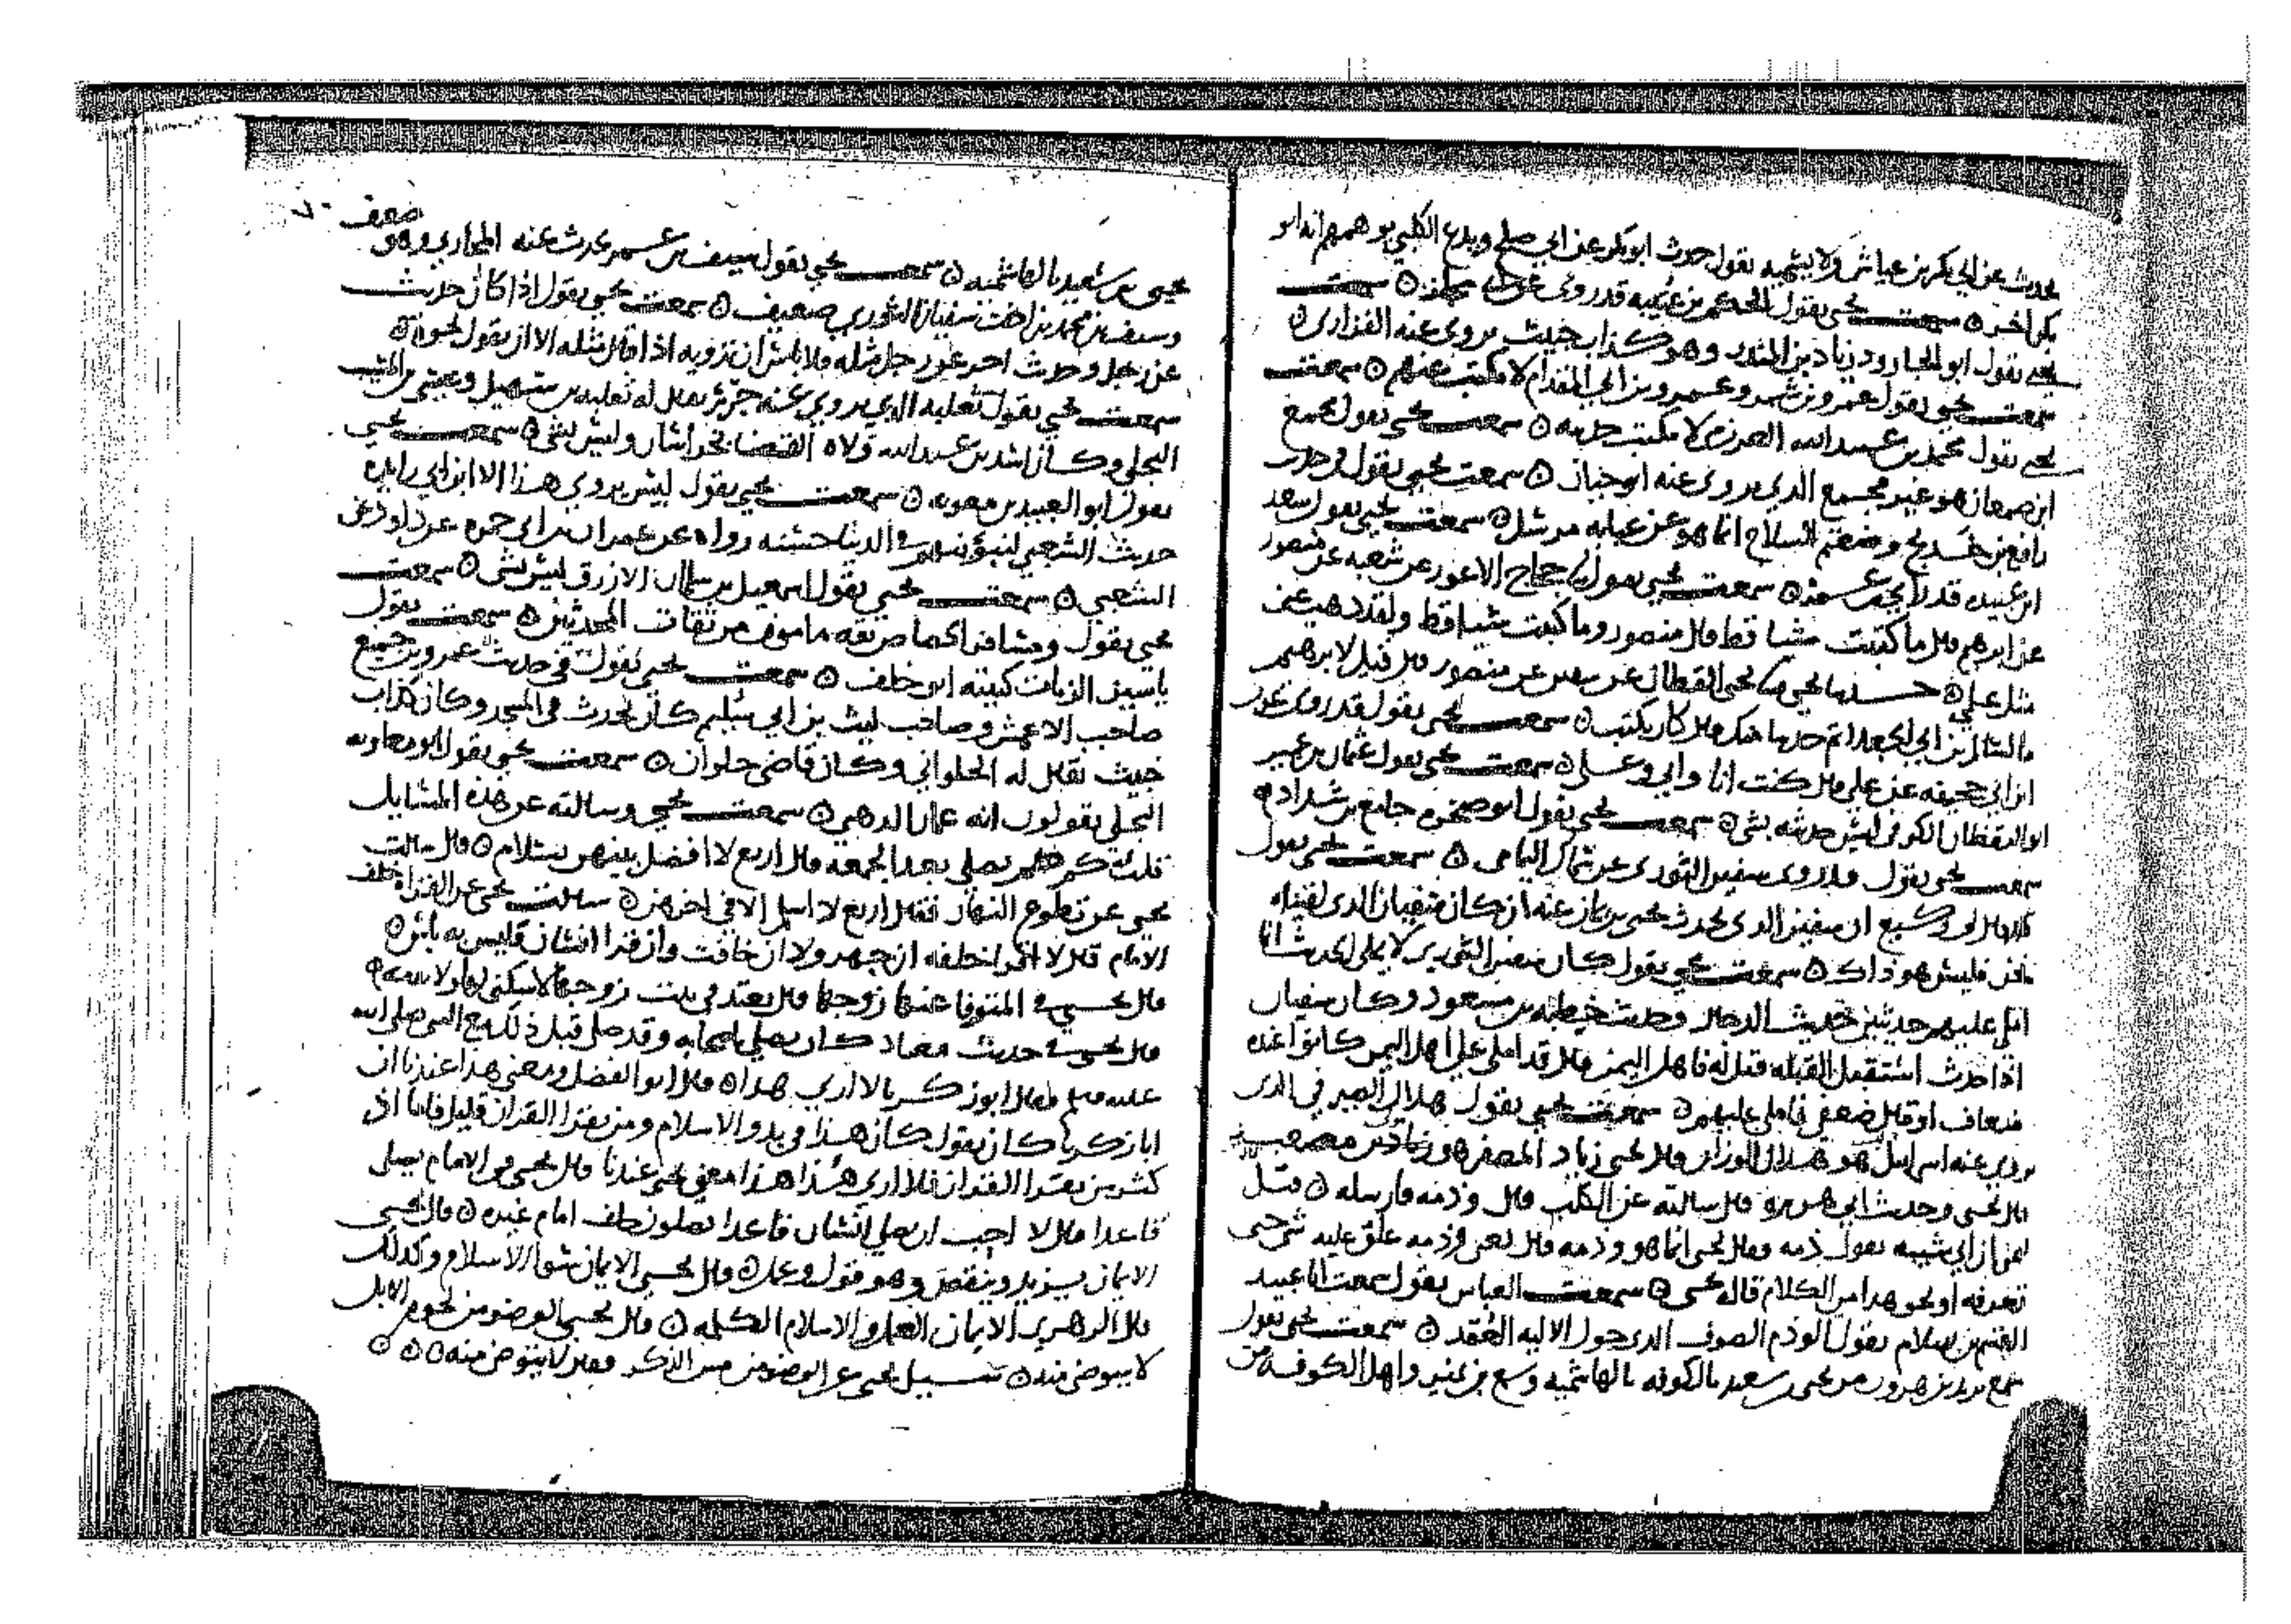 يحدث عن ابي بكر بن عياش ولا يسميه يقول حدث ابو بكر عن ابي صلح ويدع الكلبي يوهمهم انه ابو
بكر اخر ○ سمعت يحيى يقول الحكم بن عتيبه قد روى عن ابي مجلز ○ سمعت
يحيى يقول ابو الجارود زياد بن المنذر وهو كذاب خبيث يروى عنه الفزارى ○
سمعت يحيى يقول عمرو بن شمر وعمرو بن ابي المقدام لا يكتب عنهم ○ سمعت
يحيى يقول محمد بن عبيد الله العرزمى لا يكتب حديثه ○ سمعت يحيى يقول مجمع
ابن صمعان هو غير مجمع الذي يروى عنه ابو حيان ○ سمعت يحيى يقول وحديث
رافع بن خديج وضعتم السلاح انما هو عن عبايه مرسل ○ سمعت يحيى يقول سعد
ابن عبيده قد رأى ○ سمعت يحيى يقول حجاج الاعور عن شعبه عن منصور
عن ابرهيم قال ما كتبت شيا قط قال منصور وما كتبت شيا قط ولقد ذهب عني
مثل علمي ○ حدثنا يحيى يحيى القطان عن سفين عن منصور قال قيل لابرهيم
سالم بن ابي الجعد اتم حديثا منك قال كان يكتب ○ سمعت يحيى يقول قد روى عون
ابن ابي جحيفه عن علي قال كنت انا وابي وعلي ○ سمعت يحيى يقول عثمان بن عمير
ابو اليقظان الكوفي ليس حديثه بشى ○ سمعت يحيى يقول ابو صخره جامع بن شداد ○
سمعت يحيى يقول وقد روى سفين الثورى عن اليامى ○ سمعت يحيى يقول
قال لى وكيع ان سفين الذى يحدث يحيى بن يمان عنه ان كان سفيان الذى لقيناه
نحن فليس هو ذاك ○ سمعت يحيى يقول كان سفين الثورى لا يملي الحديث انما
املى عليهم حديثين حديث الدجال وحديث خطبه بن مسعود وكان سفيان
اذا حدث استقبل القبله قيل له فاهل اليمن قال قد املى على اهل اليمن كانوا عنده
ضعاف او قال ضعفى فاملى عليهم ○ سمعت يحيى يقول هلال الصيرفي الذى
يروى عنه اسرايل هو هلال الوزان قال يحيى زياد المصفر هو زياد
قال يحيى وحديث ابي هريره قال سالته عن الكلب قال وذمه وارسله ○ قيل
ان ابن ابي شيبه يقول ذمه فقال يحيى انما هو وذمه قال يعني وذمه علق عليه شى حتى
تعرفه او نحو هذا من الكلام قاله يحيى ○ سمعت العباس يقول سمعت ابا عبيد
القسم بن سلام يقول الوذم الصوف الذى حول الاليه العقد ○ سمعت يحيى يقول
سمع يزيد بن هرون من يحيى بن سعيد بالكوفه بالهاشميه وسمع بن نمير واهل الكوفه من
يحيى بن سعيد بالهاشميه ○ سمعت يحيى يقول سيف بن عمر يحدث عنه المحاربى وهو ضعيف
وسيف بن محمد بن اخت سفيان الثورى ضعيف ○ سمعت يحيى يقول اذا كان حديث
عن رجل وحدث اخر عن رجل مثله فلا باس ان ترويه اذا قال مثله الا ان يقول نحوه ○
سمعت يحيى يقول ثعلبه الذي يروي عنه جرير يقال له ثعلبه بن سهيل ويحيى بن المهلب
البجلي وكان اسد بن عبد الله ولاه القضا بخراسان وليس بشى ○ سمعت يحيى
يقول ابو العبيد بن معويه ○ سمعت يحيى يقول ليس يروى هذا الا ابن ابي زايده
حديث الشعبي لنبوئنهم في الدنيا حسنه رواه عن عمران بن ابي حمزه عن داود عن
الشعبي ○ سمعت يحيى يقول اسمعيل بن سلمان الازرق ليس بشى ○ سمعت
يحيى يقول ومسافر الجصاص ثقه مامون من ثقات المحدثين ○ سمعت يقول
ياسين الزيات كنيته ابو خلف ○ سمعت يحيى يقول في حديث عمرو بن جميع
صاحب الاعمش وصاحب ليث بن ابي سليم كان يحدث في المسجد وكان كذاب
خبيث يقال له الحلواني وكان قاضى حلوان ○ سمعت يحيى يقول ابو معاويه
البجلى يقولون انه عمار الدهني ○ سمعت يحيى وسالته عن هذه المسايل
قلت كم يصلي بعد الجمعه قال اربع لا افصل بينهن بسلام ○ قال سالت
يحيى عن تطوع النهار فقال اربع لا اسلم الا في اخرهن ○ سالت يحيى عن القراه خلف
الامام قال لا اقرا خلفه ان جهر ولا ان خافت وان قرا انسان فليس به باس ○
قال يحيى في المتوفا عنها زوجها قال تعتد في بيت زوجها لا سكنى لها ولا نفقه ○
قال يحيى في حديث معاذ كان يصلي باصحابه وقد صلى قبل ذلك مع النبي صلى الله
عليه وسلم فقال ابو زكريا لا ارى هذا ○ قال ابو الفضل ومعنى هذا عندنا ان
ابا زكريا كان يقول كان هذا في بدو الاسلام ومن يقرا القران قليل فاما اذ
كثر من يقرا القران فلا ارى هذا هذا معنى يحيى عندنا قال يحيى في الامام يصلى
قاعدا قال لا احب ان يصلي انسان قاعدا يصلون خلف امام غيره ○ قال يحيى
الايمان يزيد وينقص وهو قول وعمل ○ قال يحيى الايمان سوا الاسلام وكذلك
قال الزهرى الايمان العمل والاسلام الكلمه ○ قال يحيى الوضو من لحوم الابل
لا يتوضى منه ○ سيل يحيى عن الوضو من مس الذكر فقال لا يتوضى منه ○ ○ ○